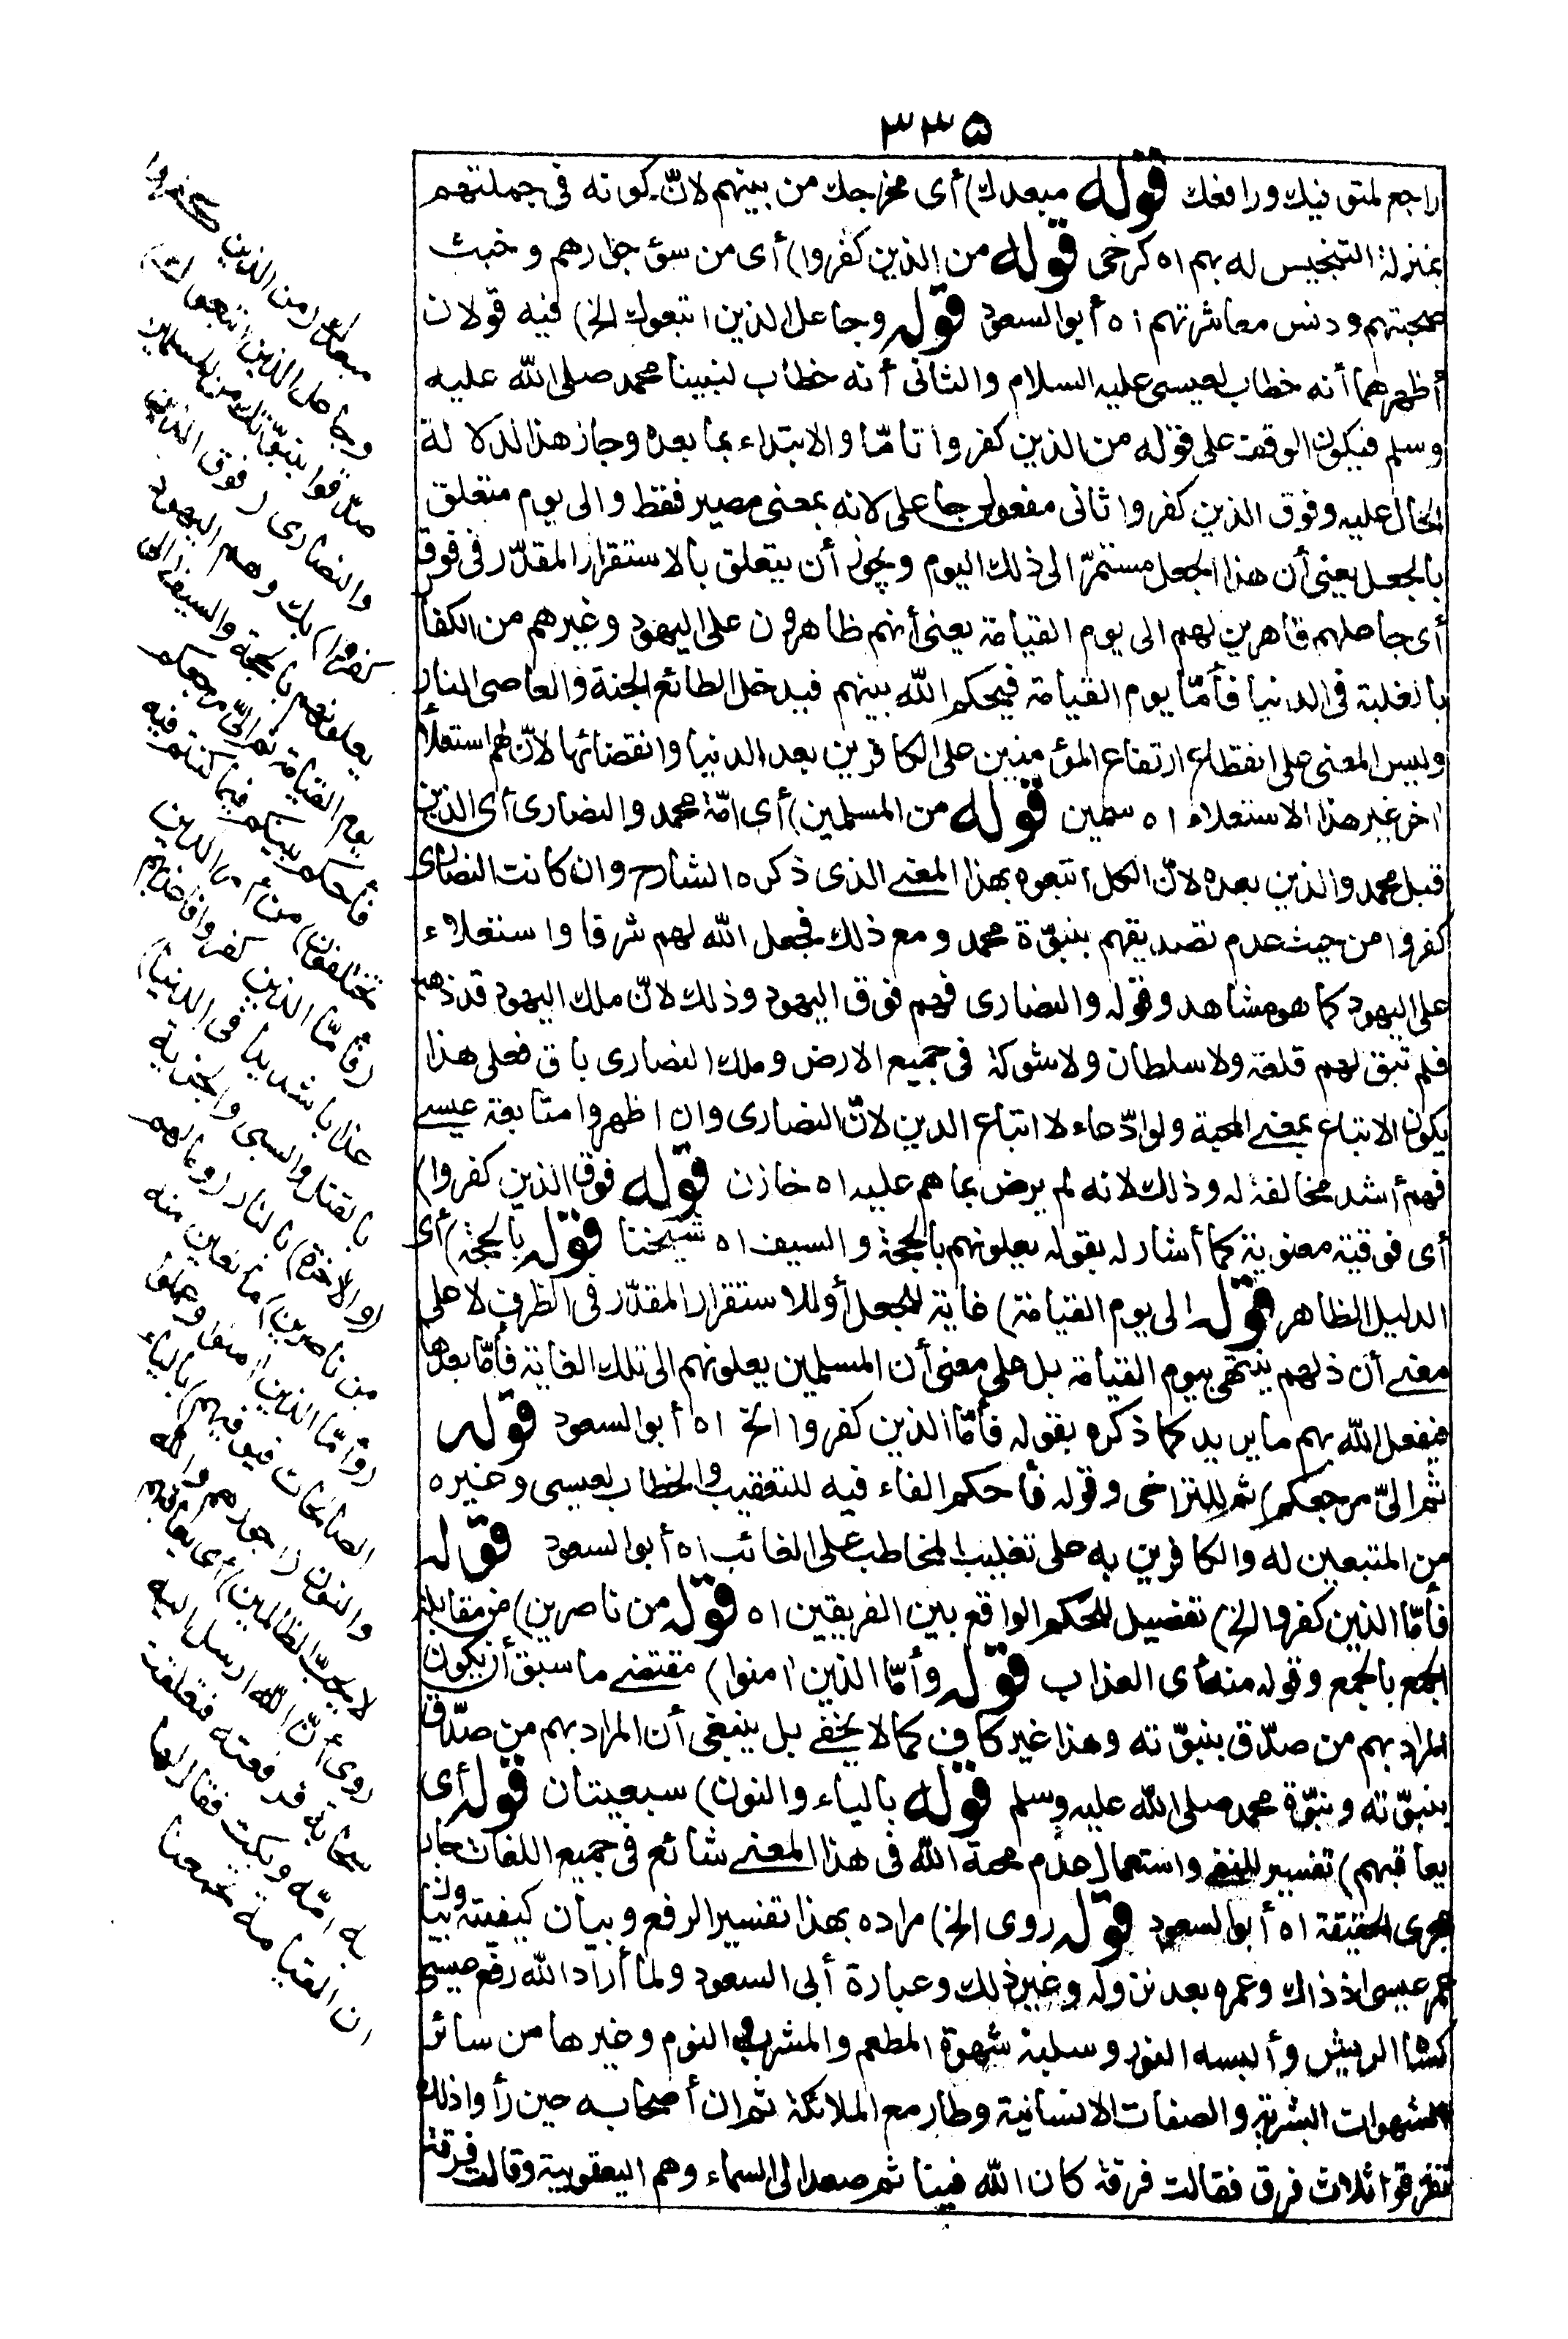 ٣٣٥
راجع لمتوفيك ورافعك قوله مبعدك) أى مخرجك من بينهم لانّ كونه فى جملتهم
بمنزلة التنجيس له بهم اه كرخى قوله من الذين كفروا) أى من سوٓ جوارهم وخبث
صحبتهم ودنس معاشرتهم اه أبو السعود قوله وجاعل الذين اتبعوك الخ) فيه قولان
أظهرهما أنه خطاب لعيسى عليه السلام والثانى أنه خطاب لنبينا محمد صلى الله عليه
وسلم فيكون الوقف على قوله من الذين كفروا تامّا والابتداء بما بعده وجاز هذا الدلالة
الحال عليه وفوق الذين كفروا ثانى مفعولى جاعل لانه بمعنى مصير فقط والى يوم متعلق
بالجعل يعنى أن هذا الجعل مستمرّ الى ذلك اليوم ويجوز أن يتعلق بالاستقرار المقدّر فى فوق
أى جاعلهم قاهرين لهم الى يوم القيامة يعنى أنهم ظاهرون على اليهود وغيرهم من الكفار
بالغلبة فى الدنيا فأمّا يوم القيامة فيحكم الله بينهم فيدخل الطائع الجنة والعاصى النار
وليس المعنى على انقطاع ارتفاع المؤمنين على الكافرين بعد الدنيا وانقضائها لانّ لهم استعلاء
اخر غير هذا الاستعلاء اه سمين قوله من المسلمين) أى امّة محمد والنصارى أى الذين
قبل محمد والذين بعده لانّ الكل اتبعوه بهذا المعنى الذى ذكره الشارح وان كانت النصارى
كفروا من حيث عدم تصديقهم بنبوّة محمد ومع ذلك فجعل الله لهم شرفا واستعلاء
على اليهود كما هو مشاهد وقوله والنصارى فهم فوق اليهود وذلك لانّ ملك اليهود قد ذهب
فلم تبق لهم قلعة ولا سلطان ولا شوكة فى جميع الارض وملك النصارى باق فعلى هذا
يكون الاتباع بمعنى المحبة ولو ادّعاء لا اتباع الدين لانّ النصارى وان اظهروا متابعة عيسى
فهم أشد مخالفة له وذلك لانه لم يرض بما هم عليه اه خازن قوله فوق الذين كفروا)
أى فوقية معنوية كما أشار له بقوله يعلونهم بالحجة والسيف اه شيخنا قوله بالحجة) أى
الدليل الظاهر قوله الى يوم القيامة) غاية للجعل أو للاستقرار المقدّر فى الظرف لا على
معنى أن ذلهم ينتهى بيوم القيامة بل على معنى أن المسلمين يعلونهم الى تلك الغاية فأمّا بعدها
فيفعل الله بهم ما يريد كما ذكره بقوله فأمّا الذين كفروا الخ اه أبو السعود قوله
ثم الىّ مرجعكم) ثم للتراخى وقوله فأحكم الفاء فيه للتعقيب والخطاب لعيسى وغيره
من المتبعين له والكافرين به على تغليب المخاطب على الغائب اه أبو السعود قوله
فأمّا الذين كفروا الخ) تفصيل للحكم الواقع بين الفريقين اه قوله من ناصرين) من مقابلة
الجمع بالجمع وقوله منه أى العذاب قوله وأمّا الذين امنوا) مقتضى ما سبق أن يكون
المراد بهم من صدّق بنبوّته وهذا غير كاف كما لا يخفى بل ينبغى أن المراد بهم من صدّق
بنبوّته ونبوّة محمد صلى الله عليه وسلم قوله بالياء والنون) سبعيتان قوله أى
يعاقبهم) تفسير للنفى واستعمال عدم محبة الله فى هذا المعنى شائع فى جميع اللغات جار
مجرى الحقيقة اه أبو السعود قوله روى الخ) مراده بهذا تفسير الرفع وبيان كيفيته وبيان
عمر عيسى اذ ذاك وعمره بعد نزوله وغير ذلك وعبارة أبى السعود ولما أراد الله رفع عيسى
كساه الريش وألبسه النور وسلبه شهوة المطعم والمشرب والنوم وغيرها من سائر
الشهوات البشرية والصفات الانسانية وطار مع الملائكة ثم ان أصحابه حين رأوا ذلك
تفرقوا ثلاث فرق فقالت فرقة كان الله فينا ثم صعد الى السماء وهم اليعقوبية وقالت فرقة
مبعدك (من الذين كفروا
وجاعل الذين اتبعوك)
صدّقوا بنبوّتك من المسلمين
والنصارى (فوق الذين
كفروا) بك وهم اليهود
يعلونهم بالحجة والسيف (الى
يوم القيامة ثم الىّ مرجعكم
فأحكم بينكم فيما كنتم فيه
تختلفون) من أمر الدين
(فأمّا الذين كفروا فأعذبهم
عذابا شديدا فى الدنيا)
بالقتل والسبى والجزية
(والاخرة) بالنار (وما لهم
من ناصرين) مانعين منه
(وأمّا الذين امنوا وعملوا
الصالحات فيوفيهم) بالياء
والنون (أجورهم والله
لا يحبّ الظالمين) أى يعاقبهم
روى أنّ الله ارسل اليه
سحابة فرفعته فتعلقت
به امّه وبكت فقال لها
ان القيامة تجمعنا